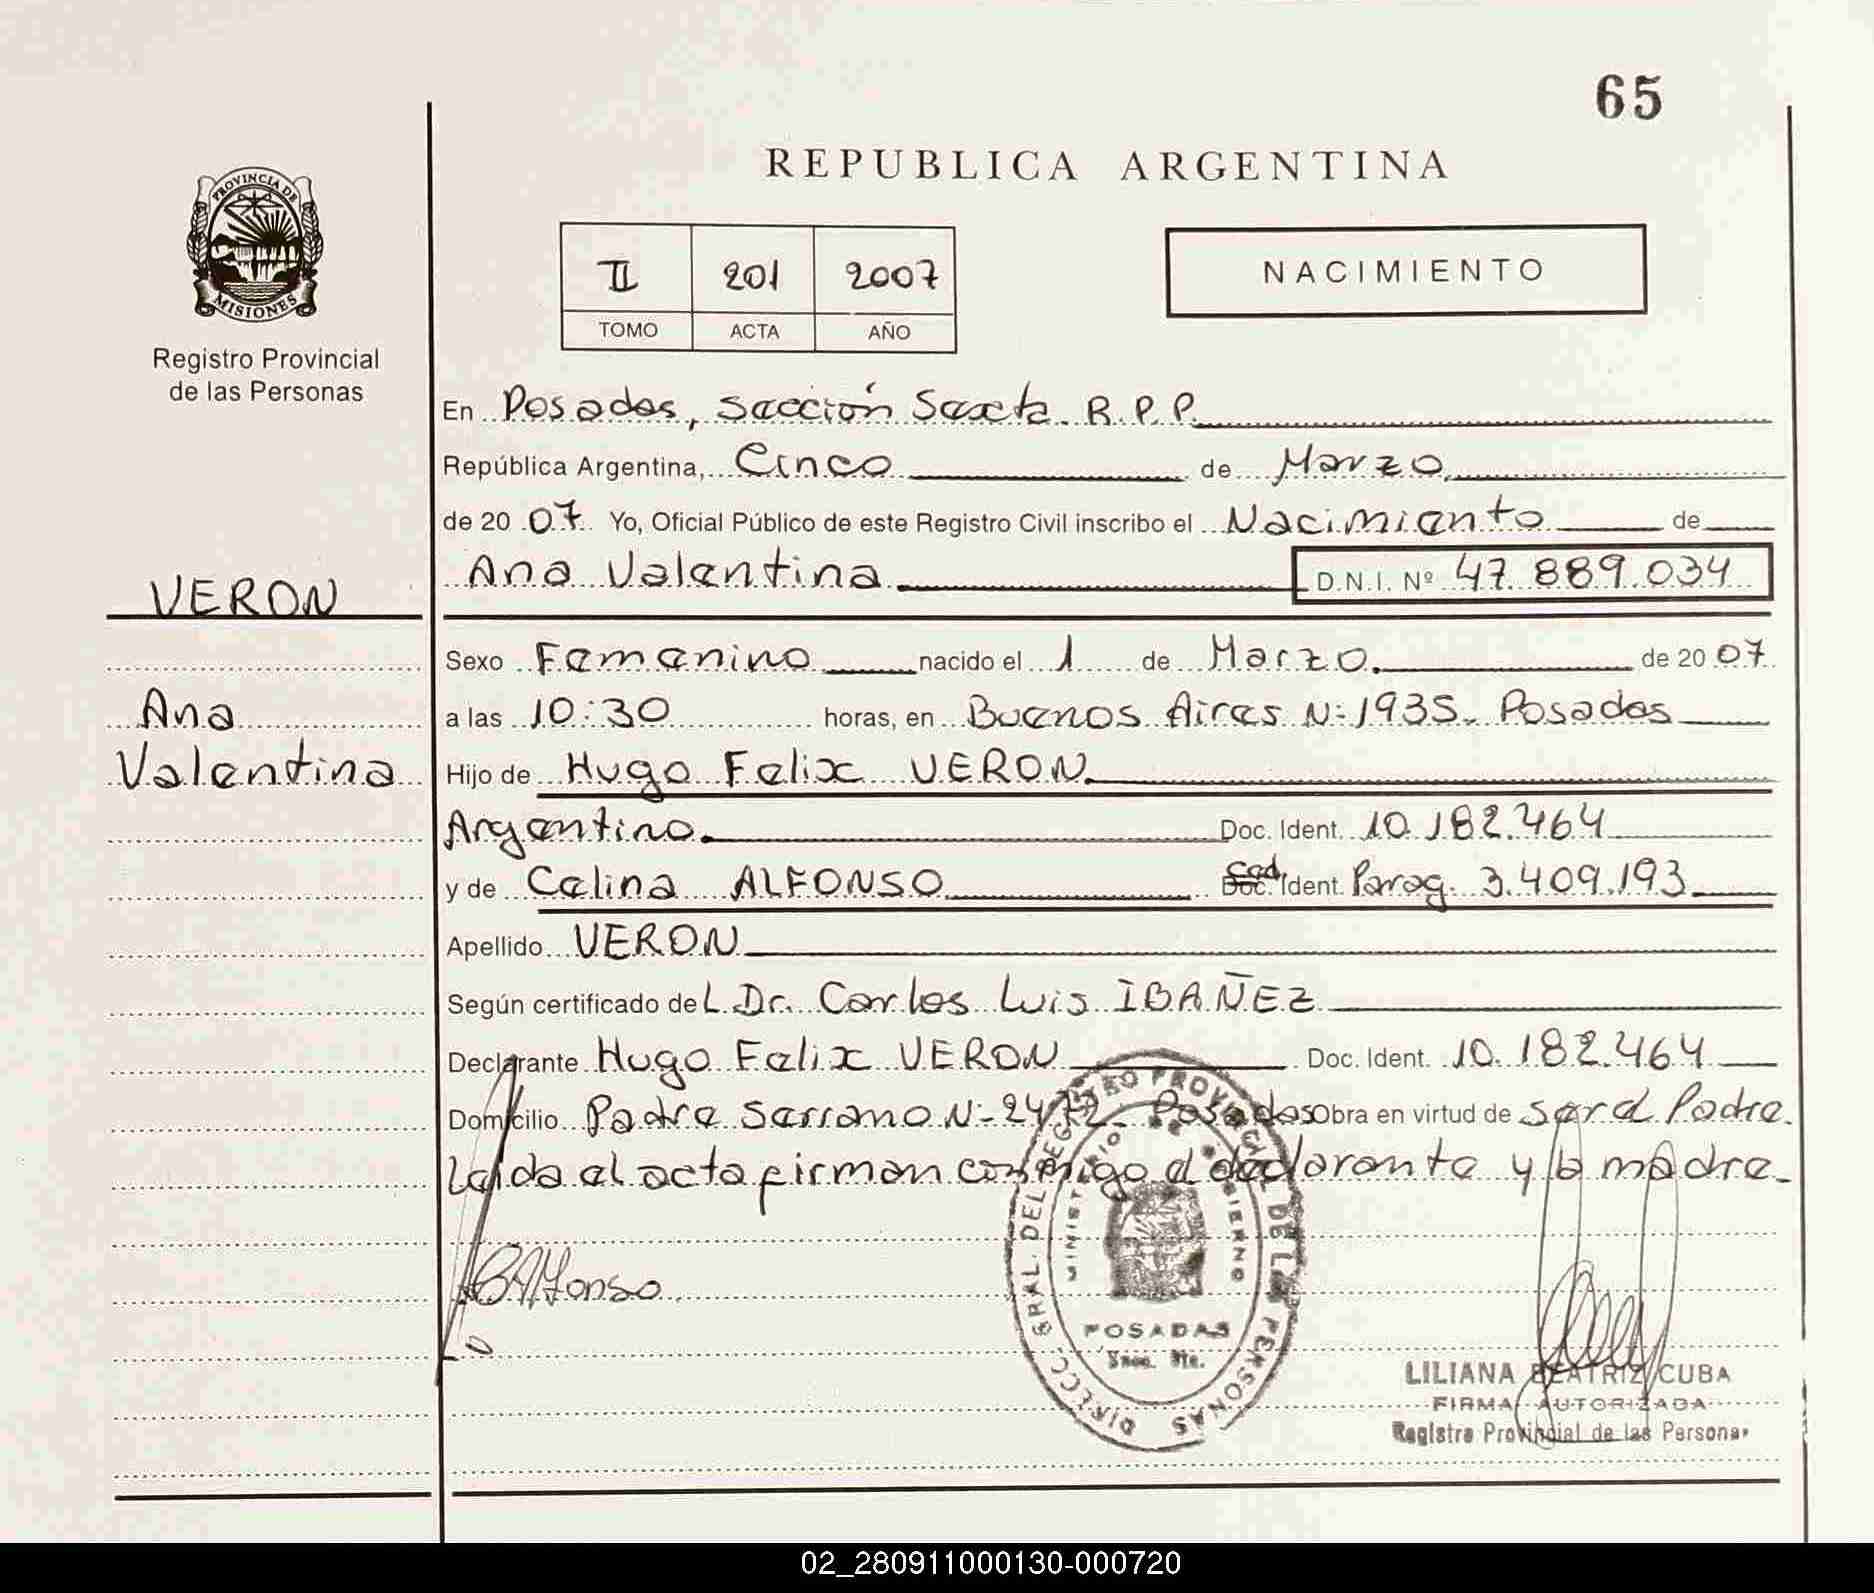 65
REPUBLICA ARGENTINA
PROVINCIA DE
MISIONES
Registro Provincial
de las Personas
II 201 2007
TOMO ACTA AÑO
NACIMIENTO
En Posadas, sección Sexta R.P.P.
República Argentina, Cinco de Marzo
de 2007 Yo, Oficial Público de este Registro Civil inscribo el Nacimiento de
Ana Valentina D.N.I. Nº 47.889.034
VERON
Ana
Valentina
Sexo Femenino nacido el 1 de Marzo de 2007
a las 10:30 horas, en Buenos Aires N: 1935. Posadas
Hijo de Hugo Felix VERON
Argentino Doc. Ident. 10.182.464
y de Celina ALFONSO Ced. Ident. Parag. 3.409.193
Apellido VERON
Según certificado del Dr. Carlos Luis IBAÑEZ
Declarante Hugo Felix VERON Doc. Ident. 10.182.464
Domicilio Padre Serrano N: 2472 Posadas Obra en virtud de ser el Padre.
Leida el acta firman conmigo el declarante y la madre.
CAlfonso
DIRECC. GRAL. DEL REGISTRO PROVINCIAL DE LAS PERSONAS
MINISTERIO DE GOBIERNO
POSADAS
LILIANA BEATRIZ CUBA
FIRMA AUTORIZADA
Registro Provincial de las Personas
02_280911000130-000720